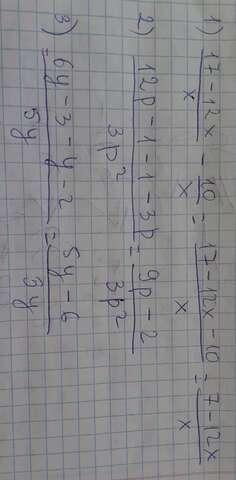 1) (17-12x)/x - 10/x = (17-12x-10)/x = (7-12x)/x
2) (12p-1-1-3p)/(3p²) = (9p-2)/(3p²)
3) = (6y-3-y-2)/(5y) = (5y-6)/(5y)